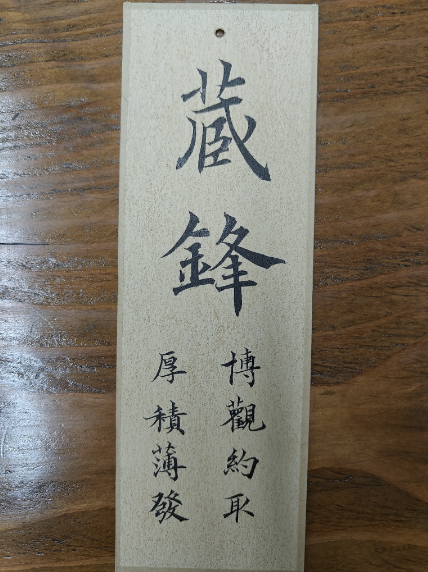 藏鋒
博觀約取
厚積薄發